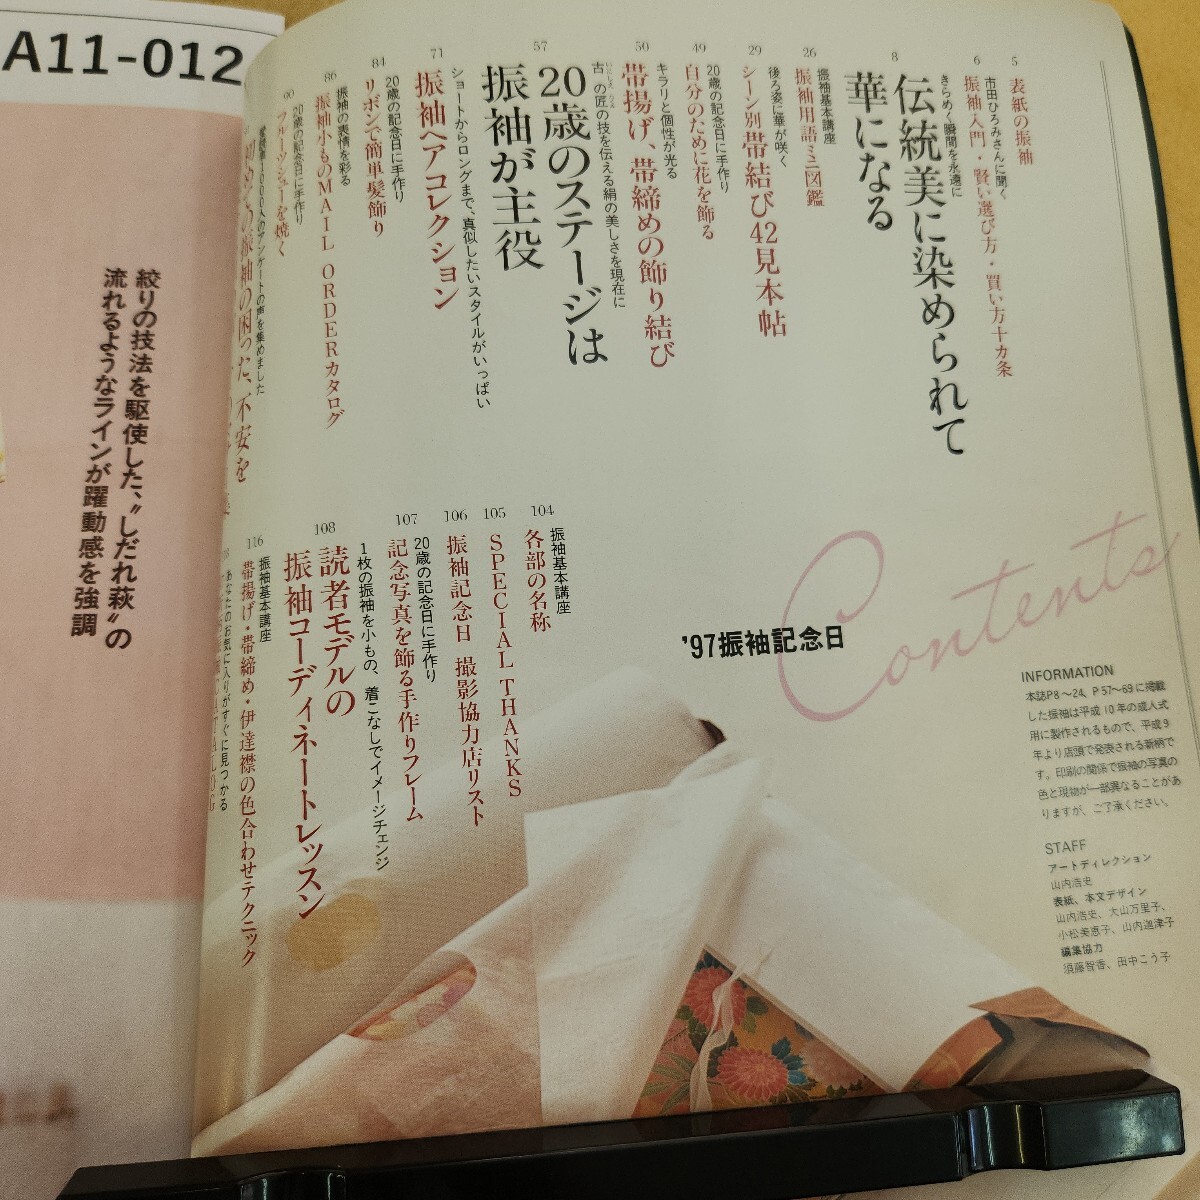 A11-012
絞りの技法を駆使した、〝しだれ萩〟の
流れるようなラインが躍動感を強調
5
表紙の振袖
6
市田ひろみさんに聞く
振袖入門・賢い選び方・買い方十カ条
8
きらめく瞬間を永遠に
伝統美に染められて
華になる
26
振袖基本講座
振袖用語ミニ図鑑
29
後ろ姿に華が咲く
シーン別帯結び42見本帖
49
20歳の記念日に手作り
自分のために花を飾る
50
キラリと個性が光る
帯揚げ、帯締めの飾り結び
57
古の匠の技を伝える絹の美しさを現在に
20歳のステージは
振袖が主役
71
ショートからロングまで、真似したいスタイルがいっぱい
振袖ヘアコレクション
84
20歳の記念日に手作り
リボンで簡単髪飾り
86
振袖の表情を彩る
振袖小ものMAIL ORDERカタログ
90
20歳の記念日に手作り
フルーツシューを焼く
人のアンケートの声を集めました
振袖の困った、不安を
104
振袖基本講座
各部の名称
105
SPECIAL THANKS
106
振袖記念日 撮影協力店リスト
107
20歳の記念日に手作り
記念写真を飾る手作りフレーム
108
1枚の振袖を小もの、着こなしでイメージチェンジ
読者モデルの
振袖コーディネートレッスン
116
振袖基本講座
帯揚げ・帯締め・伊達襟の色合わせテクニック
あなたのお気に入りがすぐに見つかる
Contents
'97振袖記念日
INFORMATION
本誌P8〜24、P57〜69に掲載
した振袖は平成10年の成人式
用に製作されるもので、平成9
年より店頭で発表される新柄で
す。印刷の関係で振袖の写真の
色と現物が一部異なることがあ
りますが、ご了承ください。
STAFF
アートディレクション
山内浩史
表紙、本文デザイン
山内浩史、大山万里子、
小松美恵子、山内迦津子
編集協力
須藤智香、田中こう子